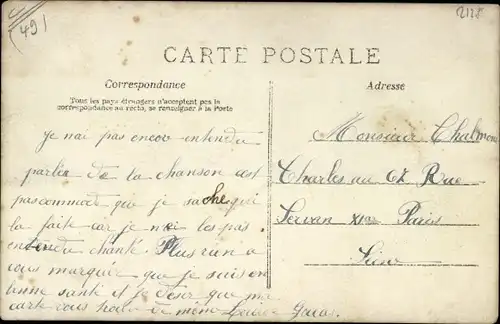 (49)
2128
CARTE POSTALE
Correspondance
Tous les pays étrangers n'acceptent pas la
correspondance au recto, se renseigner à la Poste
Adresse
Je nai pas encore entendu
parler de la chanson cest
pas commode que je sache qui
la faite car je ne les pas
entendu chanté Plus rien a
vous marquer que je suis en
bonne santé et je desir que ma
carte vous de meme
Monsieur
Charles au 67 Rue
Servan XIe Paris
Seine